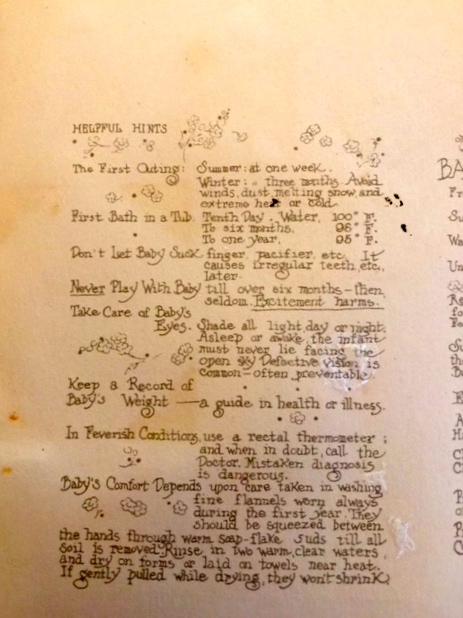 HELPFUL HINTS
The First Outing: Summer: at one week.
Winter: three months. Avoid
winds, dust, melting snow and
extreme heat or cold.
First Bath in a Tub. Tenth Day. Water, 100° F.
To six months, 96° F.
To one year, 95° F.
Don't Let Baby Suck finger, pacifier, etc. It
causes irregular teeth, etc.,
later.
Never Play With Baby till over six months - then
seldom. Excitement harms.
Take Care of Baby's
Eyes. Shade all light, day or night.
Asleep or awake, the infant
must never lie facing the
open sky. Defective vision is
common - often preventable.
Keep a Record of
Baby's Weight — a guide in health or illness.
In Feverish Conditions, use a rectal thermometer;
and when in doubt, call the
Doctor. Mistaken diagnosis
is dangerous.
Baby's Comfort Depends upon care taken in washing
fine flannels worn always
during the first year. They
should be squeezed between
the hands through warm soap-flake suds till all
soil is removed. Rinse in two warm, clear waters,
and dry on forms or laid on towels near heat.
If gently pulled while drying, they won't shrink.
BA